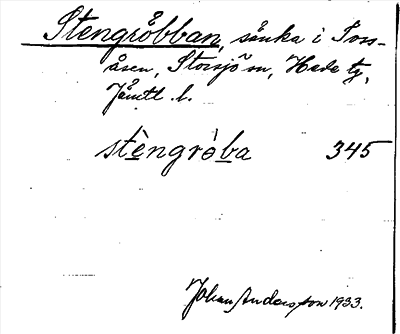 Stengråbban, sänka i Toss-
åsen, Storsjö sn, Hede tg,
Jämtl. l.
stèngròba 345
Johan Andersson 1933.